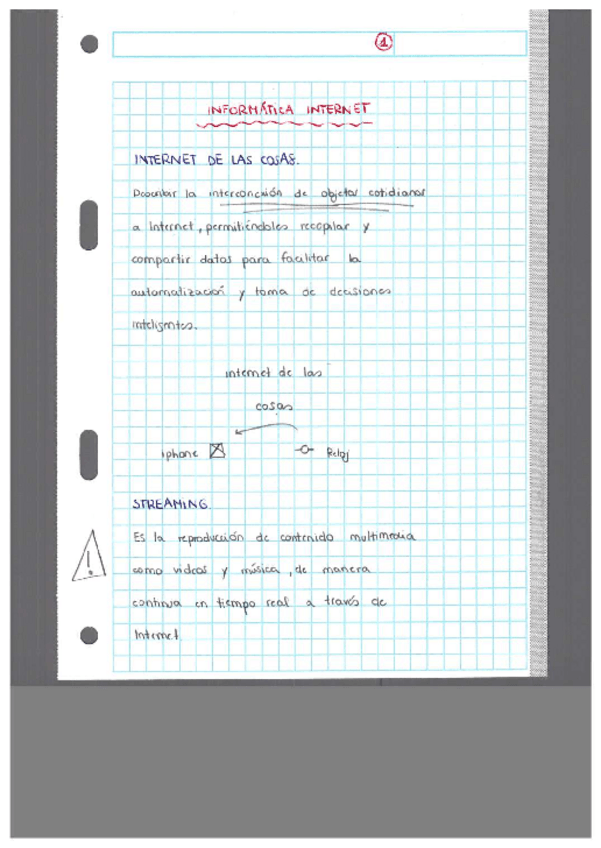 1
INFORMÁTICA INTERNET
INTERNET DE LAS COSAS.
Describir la interconexión de objetos cotidianos
a Internet, permitiéndoles recopilar y
compartir datos para facilitar la
automatización y toma de decisiones
inteligentes.
internet de las
cosas
iphone Reloj
STREAMING.
Es la reproducción de contenido multimedia
como videos y música, de manera
continua en tiempo real a través de
Internet